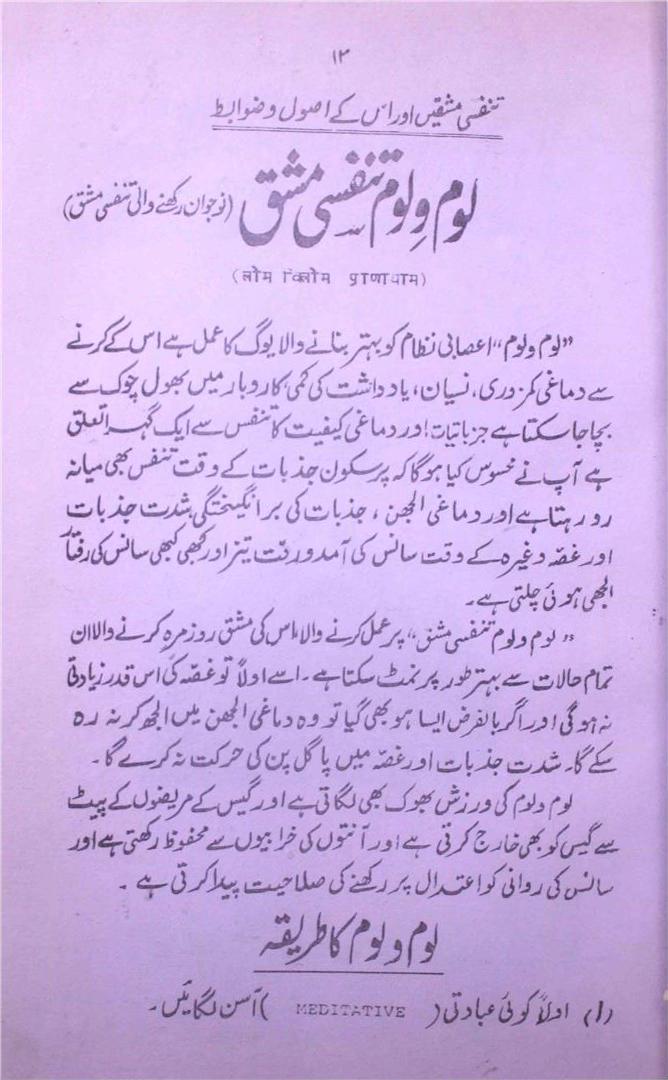 ۱۳
تنفسی مشقیں اور اس کے اصول و ضوابط
لوم وِلوم تنفسی مشق (نوجوان رکھنے والی تنفسی مشق)
(लोम विलोम प्राणायाम)
”لوم ولوم“ اعصابی نظام کو بہتر بنانے والا یوگ کا عمل ہے اس کے کرنے
سے دماغی کمزوری، نسیان، یادداشت کی کمی کاروبار میں بھول چوک سے
بچا جا سکتا ہے جزباتیات اور دماغی کیفیت کا تنفس سے ایک گہرا تعلق
ہے آپ نے محسوس کیا ہوگا کہ پرسکون جذبات کے وقت تنفس بھی میانہ
رو رہتا ہے اور دماغی الجھن، جذبات کی برانگیختگی بشدت جذبات
اور غصّہ وغیرہ کے وقت سانس کی آمدورفت تیز اور کبھی کبھی سانس کی رفتار
الجھی ہوئی چلتی ہے۔
”لوم ولوم تنفسی مشق“ پر عمل کرنے والا، اس کی مشق روزمرہ کرنے والا ان
تمام حالات سے بہتر طور پر نمٹ سکتا ہے۔ اسے اولاً تو غصّہ کی اس قدر زیادتی
نہ ہوگی اور اگر بالفرض ایسا ہو بھی گیا تو وہ دماغی الجھن میں الجھ کر نہ رہ
سکے گا۔ شدت جذبات اور غصّہ میں پاگل پن کی حرکت نہ کرے گا۔
لوم ولوم کی ورزش بھوک بھی لگاتی ہے اور گیس کے مریضوں کے پیٹ
سے گیس کو بھی خارج کرتی ہے اور آنتوں کی خرابیوں سے محفوظ رکھتی ہے اور
سانس کی روانی کو اعتدال پر رکھنے کی صلاحیت پیدا کرتی ہے۔
لوم ولوم کا طریقہ
(۱) اولاً کوئی عبادتی (MEDITATIVE) آسن لگائیں۔